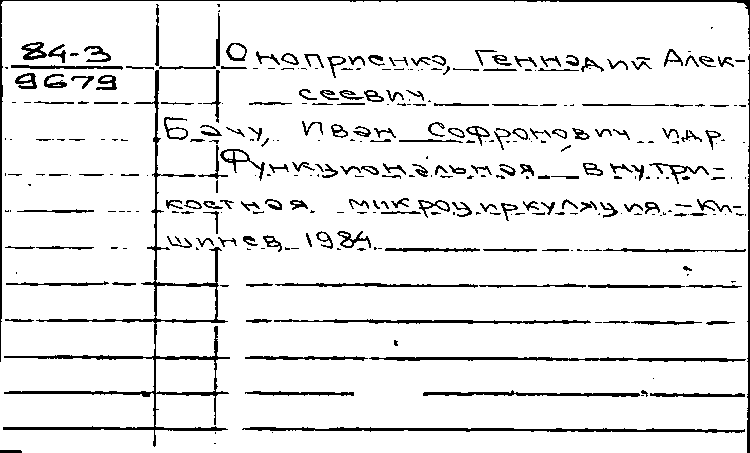 84-3
9679
Оноприенко, Геннадий Алек-
сеевич
Бачу, Иван Софронович и др
Функциональная внутри-
костная микроциркуляция. - Ки-
шинев, 1984